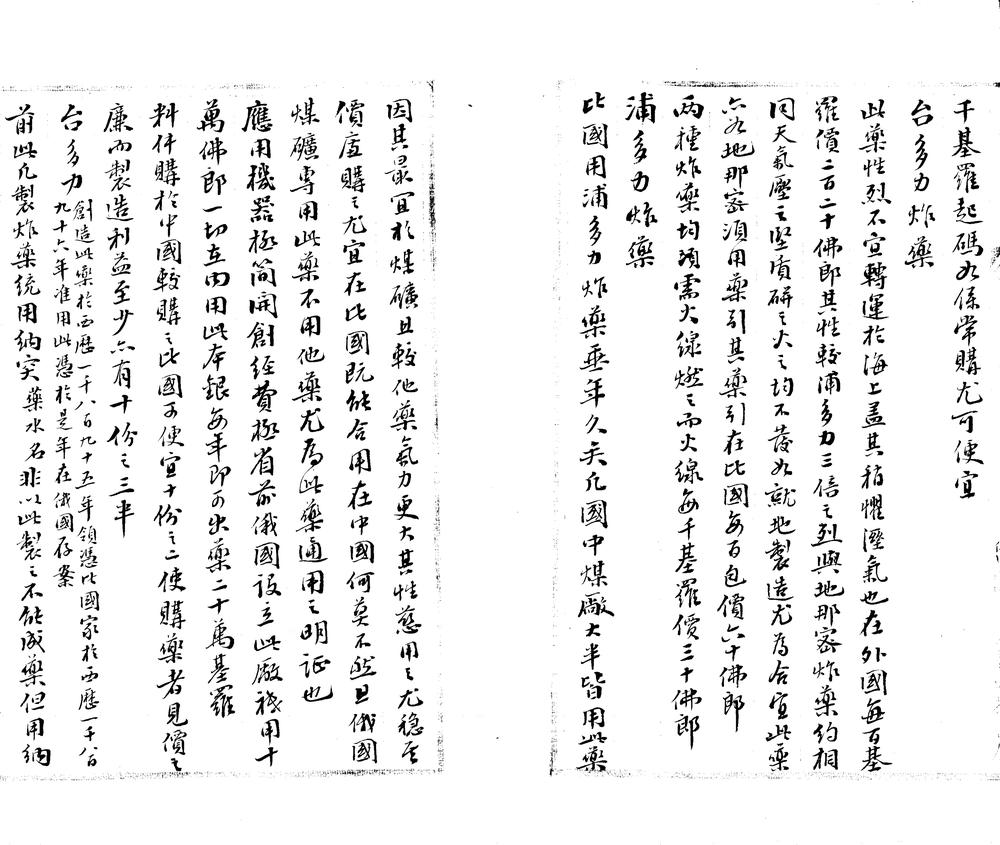 千基羅起碼如係常購尤可便宜
台多力炸藥
此藥性烈不宜轉運於海上蓋其稍懼溼氣也在外國每百基
羅價二百二十佛郎其性較浦多力三倍之烈與地那密炸藥約相
同天氣壓之堅質研之火之均不發如就地製造尤為合宜此藥
亦如地那密須用藥引其藥引在比國每百包價六十佛郎
兩種炸藥均須需火線燃之而火線每千基羅價三十佛郎
浦多力炸藥
比國用浦多力炸藥垂年久矣凡國中煤廠大半皆用此藥
因其最宜於煤礦且較他藥氣力更大其性慈用之尤穩至
價值購之尤宜在比國既能合用在中國何莫不然且俄國
煤礦專用此藥不用他藥尤為此藥通用之明証也
應用機器極简開創經費極省前俄國設立此廠祗用十
萬佛郎一切在內用此本銀每年即可出藥二十萬基羅
料件購於中國較購之比國可便宜十份之二使購藥者見價之
廉而製造利益至少亦有十份之三半
台多力創造此藥於西歷一千八百九十五年領憑比國家於西歷一千八百
九十六年准用此憑於是年在俄國存案
前此凡製炸藥統用納突藥水名非以此製之不能成藥但用納